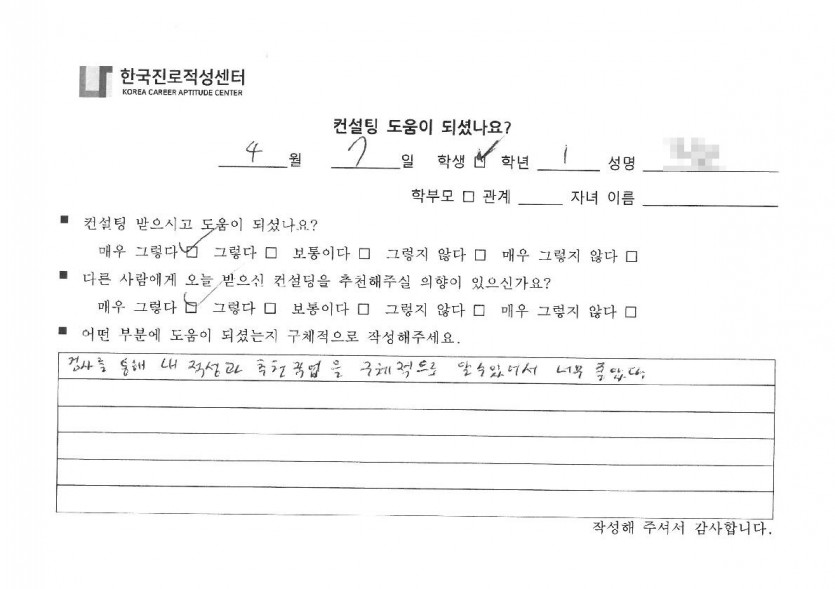 한국진로적성센터
KOREA CAREER APTITUDE CENTER
컨설팅 도움이 되셨나요?
4 월 7 일 학생 ☑ 학년 1 성명
학부모 □ 관계 자녀 이름
■ 컨설팅 받으시고 도움이 되셨나요?
매우 그렇다 ☑ 그렇다 □ 보통이다 □ 그렇지 않다 □ 매우 그렇지 않다 □
■ 다른 사람에게 오늘 받으신 컨설팅을 추천해주실 의향이 있으신가요?
매우 그렇다 ☑ 그렇다 □ 보통이다 □ 그렇지 않다 □ 매우 그렇지 않다 □
■ 어떤 부분에 도움이 되셨는지 구체적으로 작성해주세요.
검사를 통해 내 적성과 추천직업을 구체적으로 알수있어서 너무 좋았다.
작성해 주셔서 감사합니다.